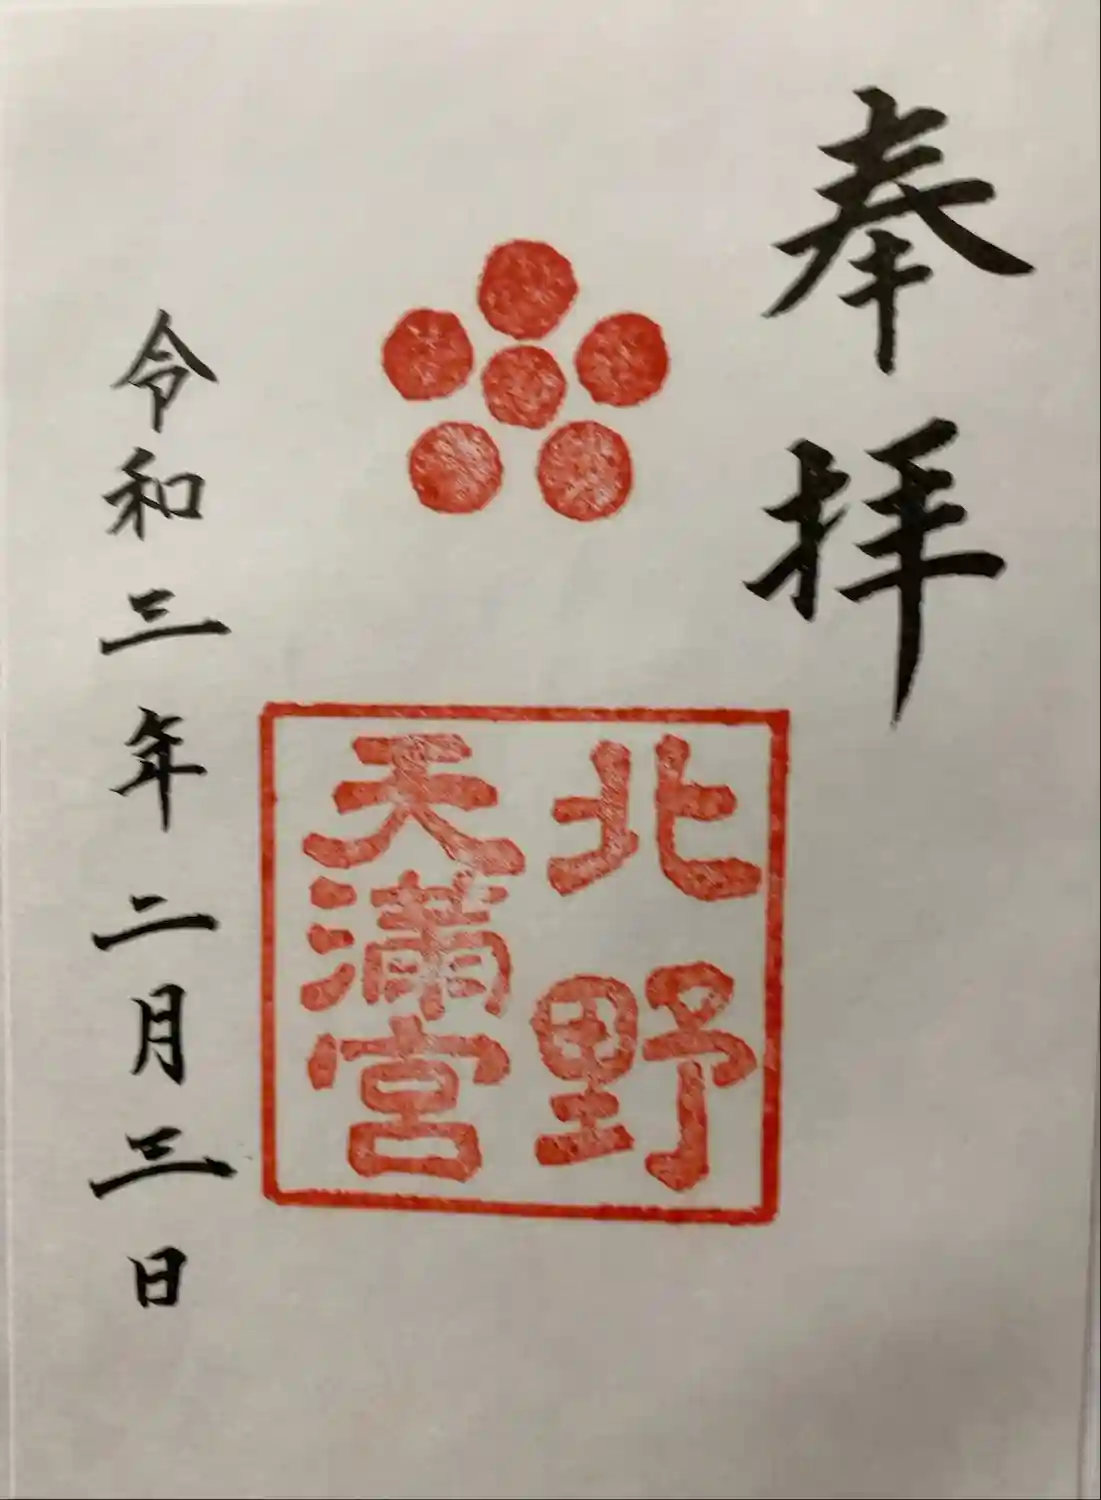 奉拝
北野
天満宮
令和三年二月三日